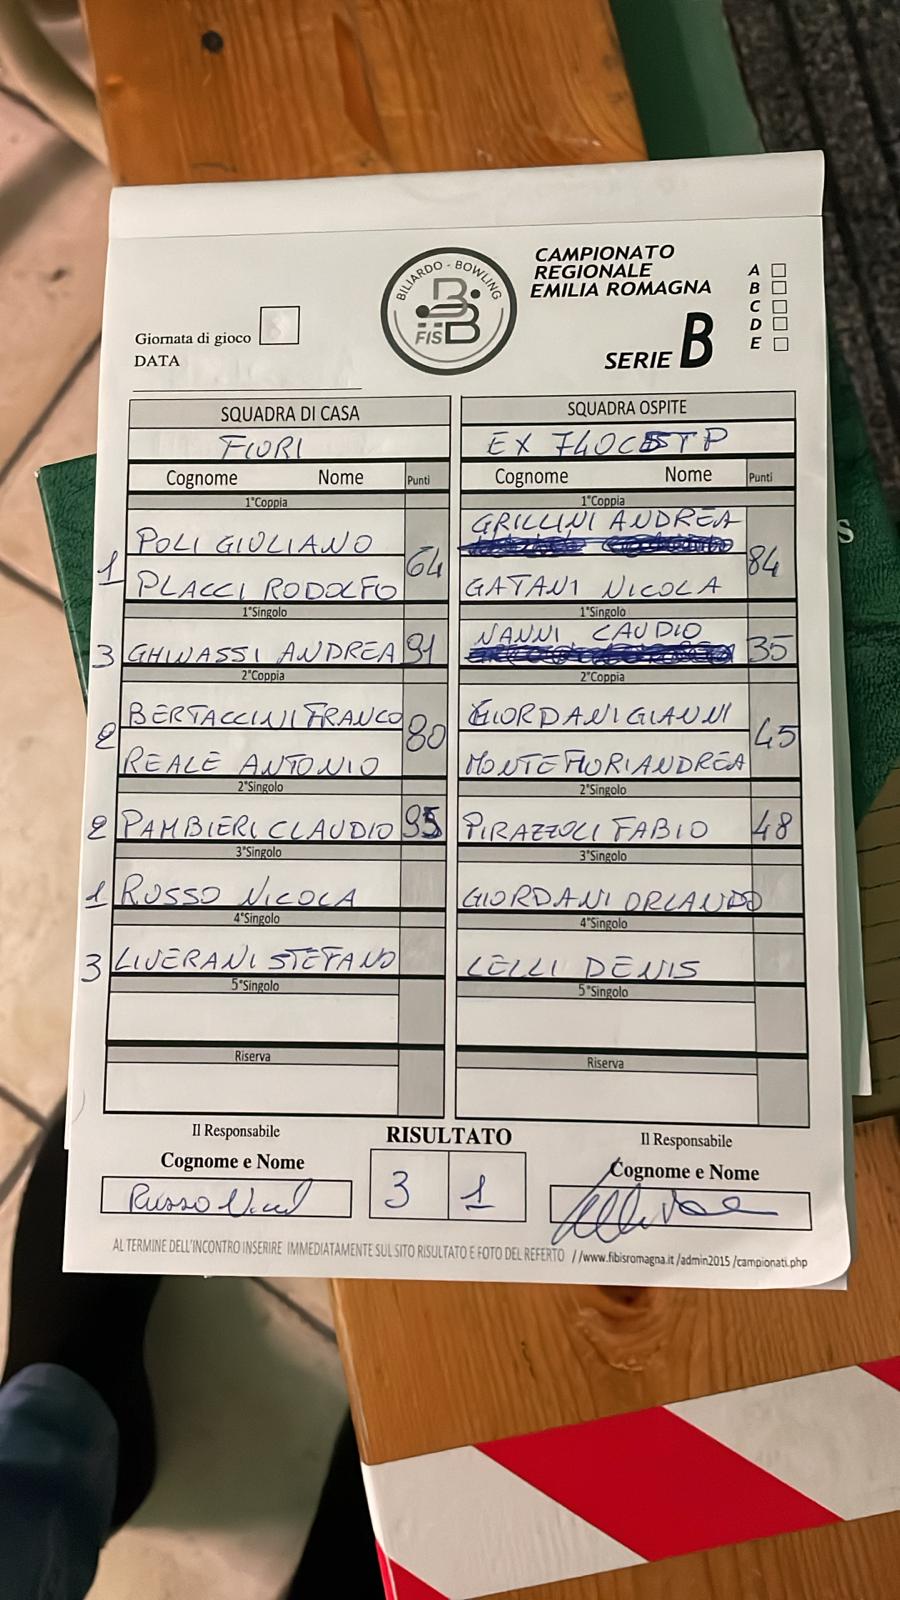 BILIARDO - BOWLING
FISBB
CAMPIONATO
REGIONALE
EMILIA ROMAGNA
SERIE B
A
B
C
D
E
Giornata di gioco
DATA
SQUADRA DI CASA SQUADRA OSPITE
FIORI EX 740CSTP
Cognome Nome Punti Cognome Nome Punti
1°Coppia 1°Coppia
1 POLI GIULIANO 64 GRILLINI ANDREA 84
PLACCI RODOLFO GATANI NICOLA
1°Singolo 1°Singolo
3 GHINASSI ANDREA 91 NANNI CAUDIO 35
2°Coppia 2°Coppia
2 BERTACCINI FRANCO 80 GIORDANI GIANNI 45
REALE ANTONIO MONTEFIORI ANDREA
2°Singolo 2°Singolo
2 PAMBIERI CLAUDIO 95 PIRAZZOLI FABIO 48
3°Singolo 3°Singolo
1 RUSSO NICOLA GIORDANI ORLANDO
4°Singolo 4°Singolo
3 LIVERANI STEFANO LELLI DENIS
5°Singolo 5°Singolo
Riserva Riserva
Il Responsabile RISULTATO Il Responsabile
Cognome e Nome 3 1 Cognome e Nome
Russo
AL TERMINE DELL'INCONTRO INSERIRE IMMEDIATAMENTE SUL SITO RISULTATO E FOTO DEL REFERTO //www.fibisromagna.it /admin2015 /campionati.php
S